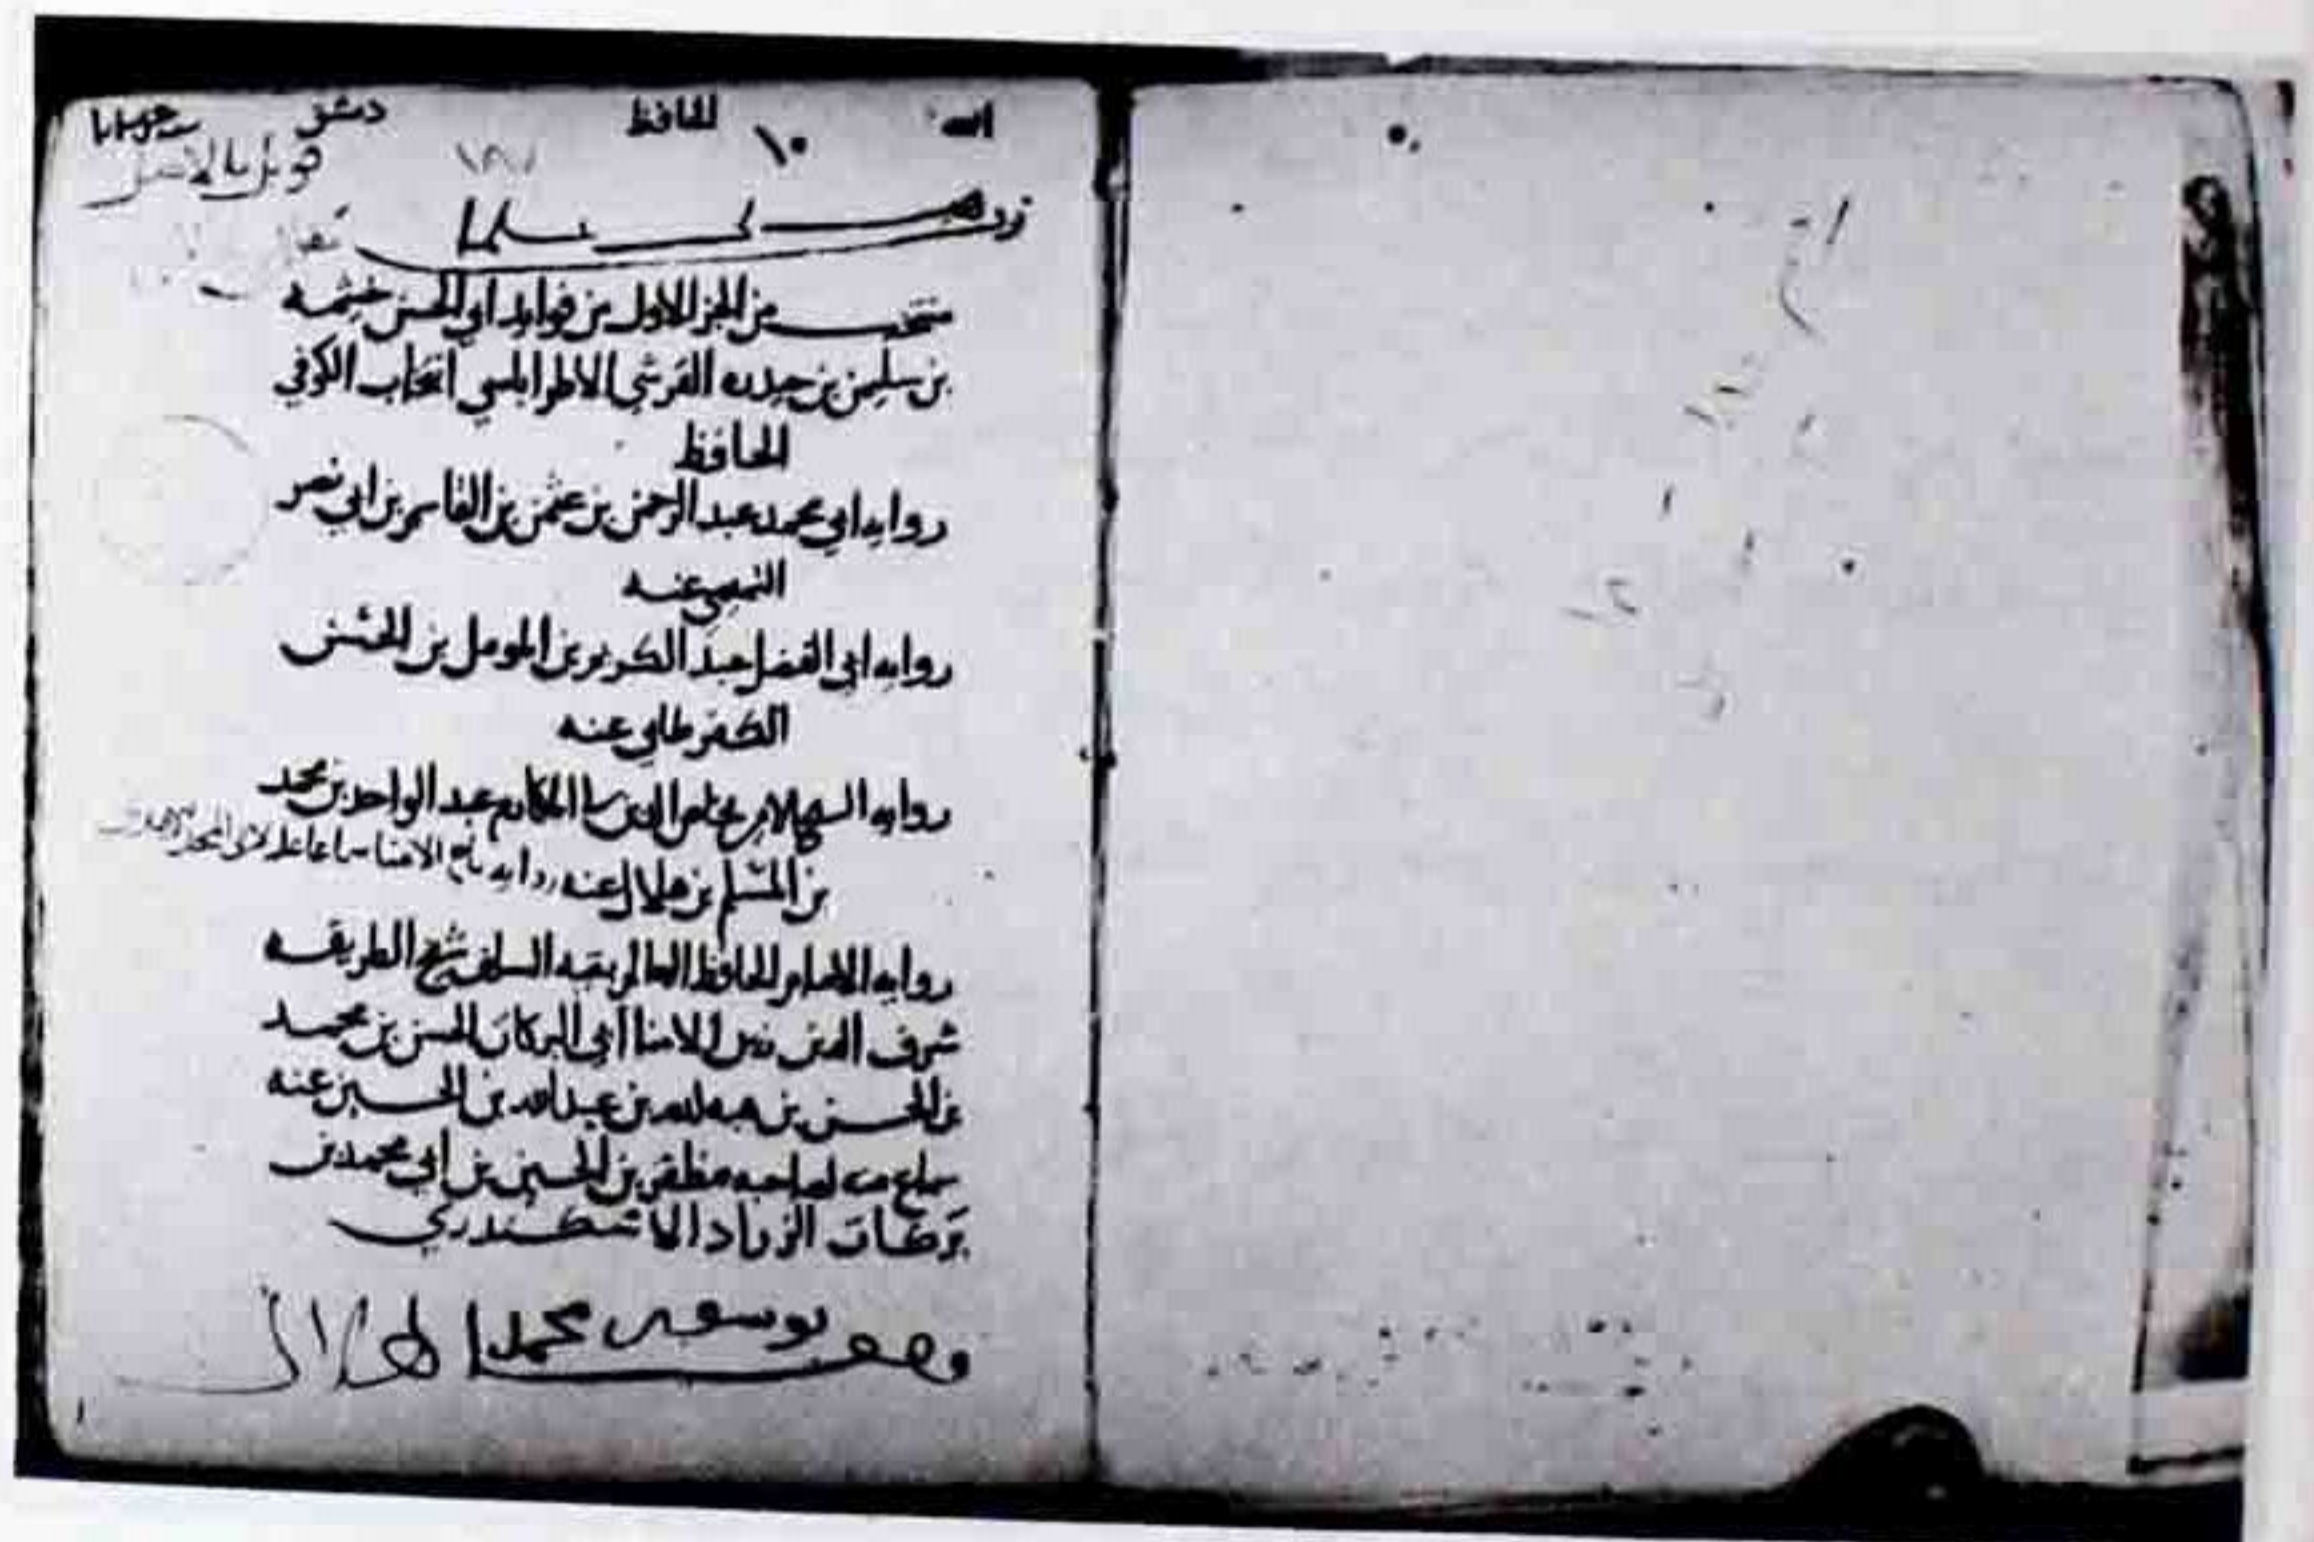 الحافظ
دمشق
١٠
قوبل بالاصل
منتخب من الجز الاول من فوايد ابي الحسن خيثمه
بن سليمن بن حيدره القرشي الاطرابلسي انتخاب الكوفي
الحافظ
روايه ابي محمد عبد الرحمن بن عثمن بن القاسم بن ابي نصر
التميمي عنه
روايه ابي الفضل عبد الكريم بن المومل بن الحسن
الكفرطابي عنه
روايه ابي المكارم عبد الواحد بن محمد
بن المسلم بن هلال عنه
روايه الامام الحافظ العالم بقيه السلف شيخ الطريقه
شرف الدين زين الامنا ابي البركات الحسن بن محمد
بن الحسن بن هبه الله بن عبد الله بن الحسين عنه
سماع منه لصاحبه مظفر بن الحسين بن ابي محمد بن
بركات الزياد الاسكندري
وقف يوسف محمد الهكاري